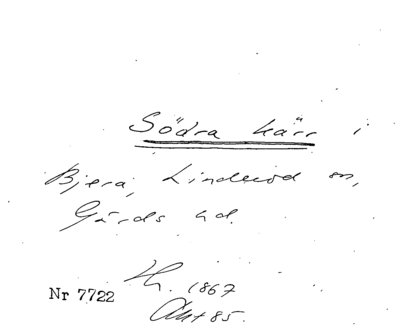 Södra kärr i
Bjera, Linderöd sn,
Gärds hd.
H. 1867
Nr 7722
Akt 85.